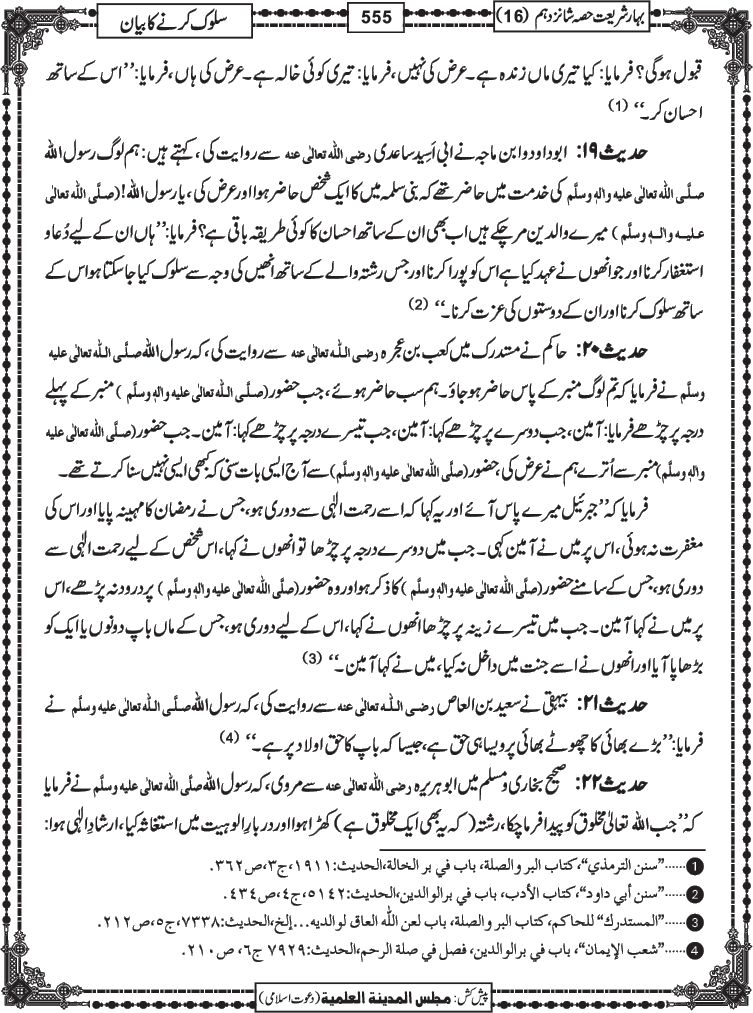 بہارِ شریعت حصہ شانزدہم (16)
555
سلوک کرنے کا بیان
قبول ہوگی؟ فرمایا: کیا تیری ماں زندہ ہے۔ عرض کی نہیں، فرمایا: تیری کوئی خالہ ہے۔ عرض کی ہاں، فرمایا: ”اس کے ساتھ
احسان کر۔“ (1)
حدیث ۱۹: ابو داود و ابن ماجہ نے ابی اُسید ساعدی رضی اللہ تعالٰی عنہ سے روایت کی، کہتے ہیں: ہم لوگ رسول اللہ
صلَّی اللہ تعالٰی علیہ واٰلہٖ وسلَّم کی خدمت میں حاضر تھے کہ بنی سلمہ میں کا ایک شخص حاضر ہوا اور عرض کی، یارسول اللہ! (صلَّی اللہ تعالٰی
علیہ واٰلہٖ وسلَّم) میرے والدین مرچکے ہیں اب بھی ان کے ساتھ احسان کا کوئی طریقہ باقی ہے؟ فرمایا: ”ہاں ان کے لیے دُعا و
استغفار کرنا اور جو انھوں نے عہد کیا ہے اس کو پورا کرنا اور جس رشتہ والے کے ساتھ انھیں کی وجہ سے سلوک کیا جاسکتا ہو اس کے
ساتھ سلوک کرنا اور ان کے دوستوں کی عزت کرنا۔“ (2)
حدیث ۲۰: حاکم نے مستدرک میں کعب بن عجرہ رضی اللہ تعالٰی عنہ سے روایت کی، کہ رسول اللہ صلَّی اللہ تعالٰی علیہ
وسلَّم نے فرمایا کہ تم لوگ منبر کے پاس حاضر ہوجاؤ۔ ہم سب حاضر ہوئے، جب حضور (صلَّی اللہ تعالٰی علیہ واٰلہٖ وسلَّم) منبر کے پہلے
درجہ پر چڑھے فرمایا: آمین، جب دوسرے پر چڑھے کہا: آمین، جب تیسرے درجہ پر چڑھے کہا: آمین۔ جب حضور (صلَّی اللہ تعالٰی علیہ
واٰلہٖ وسلَّم) منبر سے اُترے ہم نے عرض کی، حضور (صلَّی اللہ تعالٰی علیہ واٰلہٖ وسلَّم) سے آج ایسی بات سنی کہ کبھی ایسی نہیں سنا کرتے تھے۔
فرمایا کہ ”جبرئیل میرے پاس آئے اور یہ کہا کہ اسے رحمت الٰہی سے دوری ہو، جس نے رمضان کا مہینہ پایا اور اس کی
مغفرت نہ ہوئی، اس پر میں نے آمین کہی۔ جب میں دوسرے درجہ پر چڑھا تو انھوں نے کہا، اس شخص کے لیے رحمت الٰہی سے
دوری ہو، جس کے سامنے حضور (صلَّی اللہ تعالٰی علیہ واٰلہٖ وسلَّم) کا ذکر ہو اور وہ حضور (صلَّی اللہ تعالٰی علیہ واٰلہٖ وسلَّم) پر درود نہ پڑھے، اس
پر میں نے کہا آمین۔ جب میں تیسرے زینہ پر چڑھا انھوں نے کہا، اس کے لیے دوری ہو، جس کے ماں باپ دونوں یا ایک کو
بڑھاپا آیا اور انھوں نے اسے جنت میں داخل نہ کیا، میں نے کہا آمین۔“ (3)
حدیث ۲۱: بیہقی نے سعید بن العاص رضی اللہ تعالٰی عنہ سے روایت کی، کہ رسول اللہ صلَّی اللہ تعالٰی علیہ وسلَّم نے
فرمایا: ”بڑے بھائی کا چھوٹے بھائی پر ویسا ہی حق ہے، جیسا کہ باپ کا حق اولاد پر ہے۔“ (4)
حدیث ۲۲: صحیح بخاری و مسلم میں ابوہریرہ رضی اللہ تعالٰی عنہ سے مروی، کہ رسول اللہ صلَّی اللہ تعالٰی علیہ واٰلہٖ وسلَّم نے فرمایا
کہ ”جب اللہ تعالٰی مخلوق کو پیدا فرماچکا، رشتہ (کہ یہ بھی ایک مخلوق ہے) کھڑا ہوا اور دربارِ الوہیت میں استغاثہ کیا، ارشادِ الٰہی ہوا:
1 ......”سنن الترمذي“، كتاب البر والصلة، باب في بر الخالة، الحديث: ۱۹۱۱، ج۳، ص۳۶۲.
2 ......”سنن أبي داود“، كتاب الأدب، باب في برالوالدين، الحديث: ۵۱۴۲، ج۴، ص۴۳۴.
3 ......”المستدرك“ للحاكم، كتاب البر والصلة، باب لعن اللہ العاق لوالديه...إلخ، الحديث: ۷۳۳۸، ج۵، ص۲۱۲.
4 ......”شعب الإيمان“، باب في برالوالدين، فصل في صلة الرحم، الحديث: ۷۹۲۹ ج۶، ص۲۱۰.
پیش کش: مجلس المدينة العلمية (دعوت اسلامی)